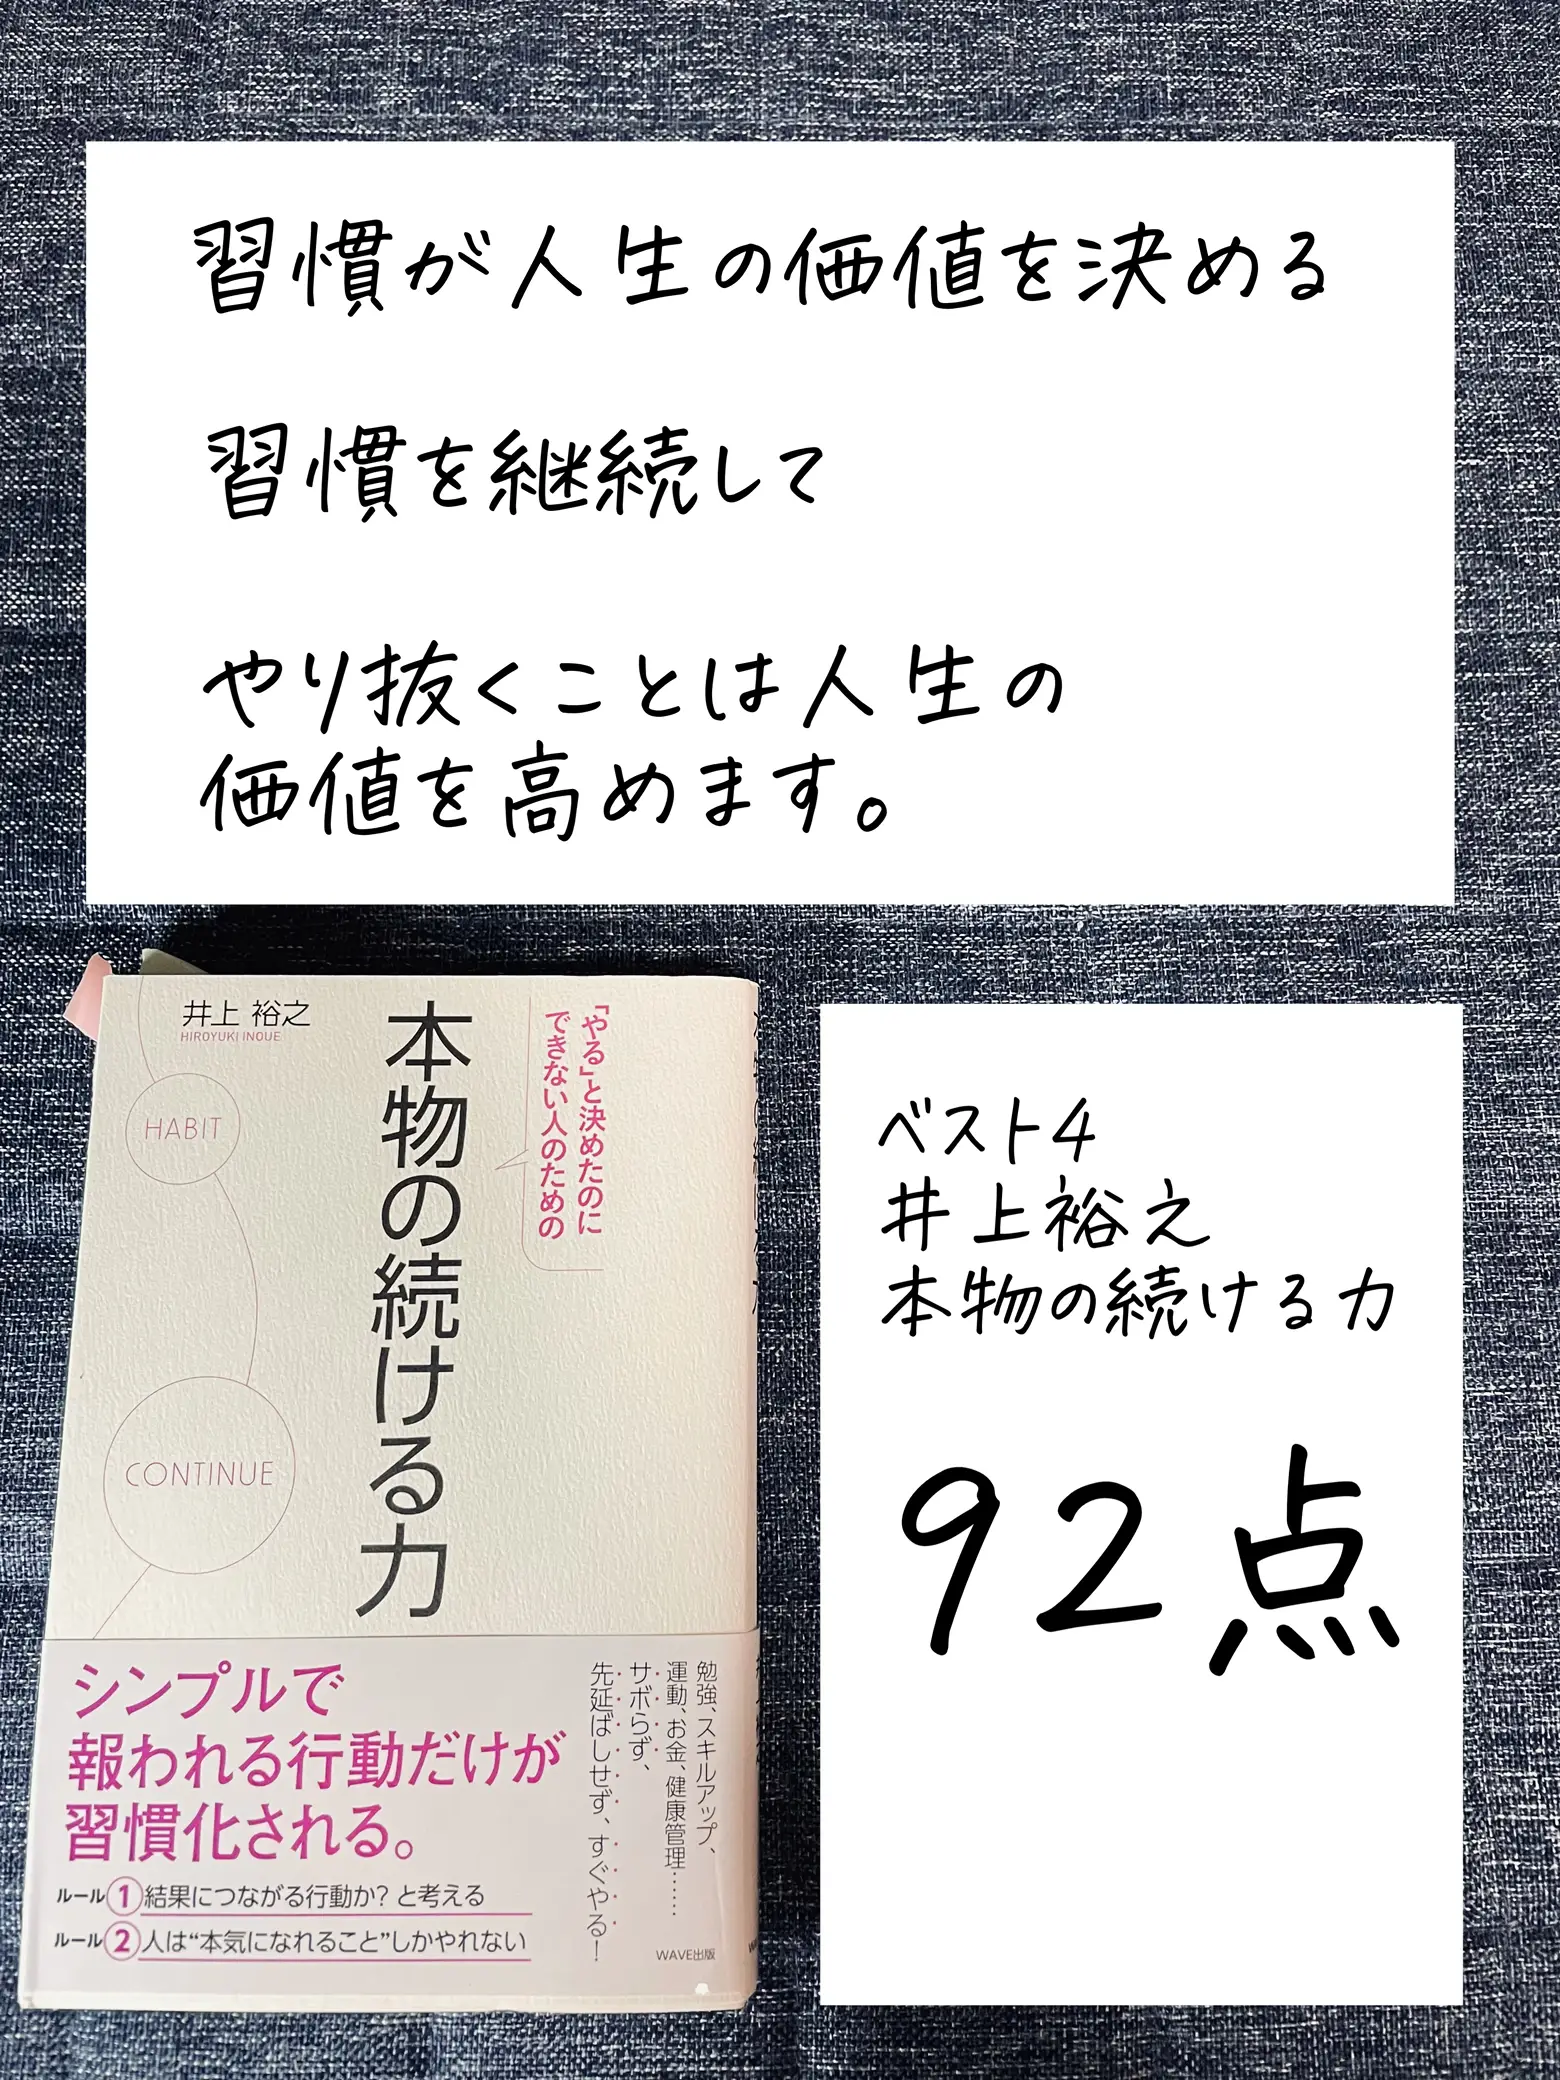 習慣が人生の価値を決める
習慣を継続して
やり抜くことは人生の
価値を高めます。
井上 裕之
HIROYUKI INOUE
「やる」と決めたのに
できない人のための
本物の続ける力
HABIT
CONTINUE
シンプルで
報われる行動だけが
習慣化される。
ルール1 結果につながる行動か? と考える
ルール2 人は“本気になれること”しかやれない
勉強、スキルアップ、
運動、お金、健康管理……
サボらず、
先延ばしせず、すぐやる!
WAVE出版
ベスト4
井上裕之
本物の続ける力
92点